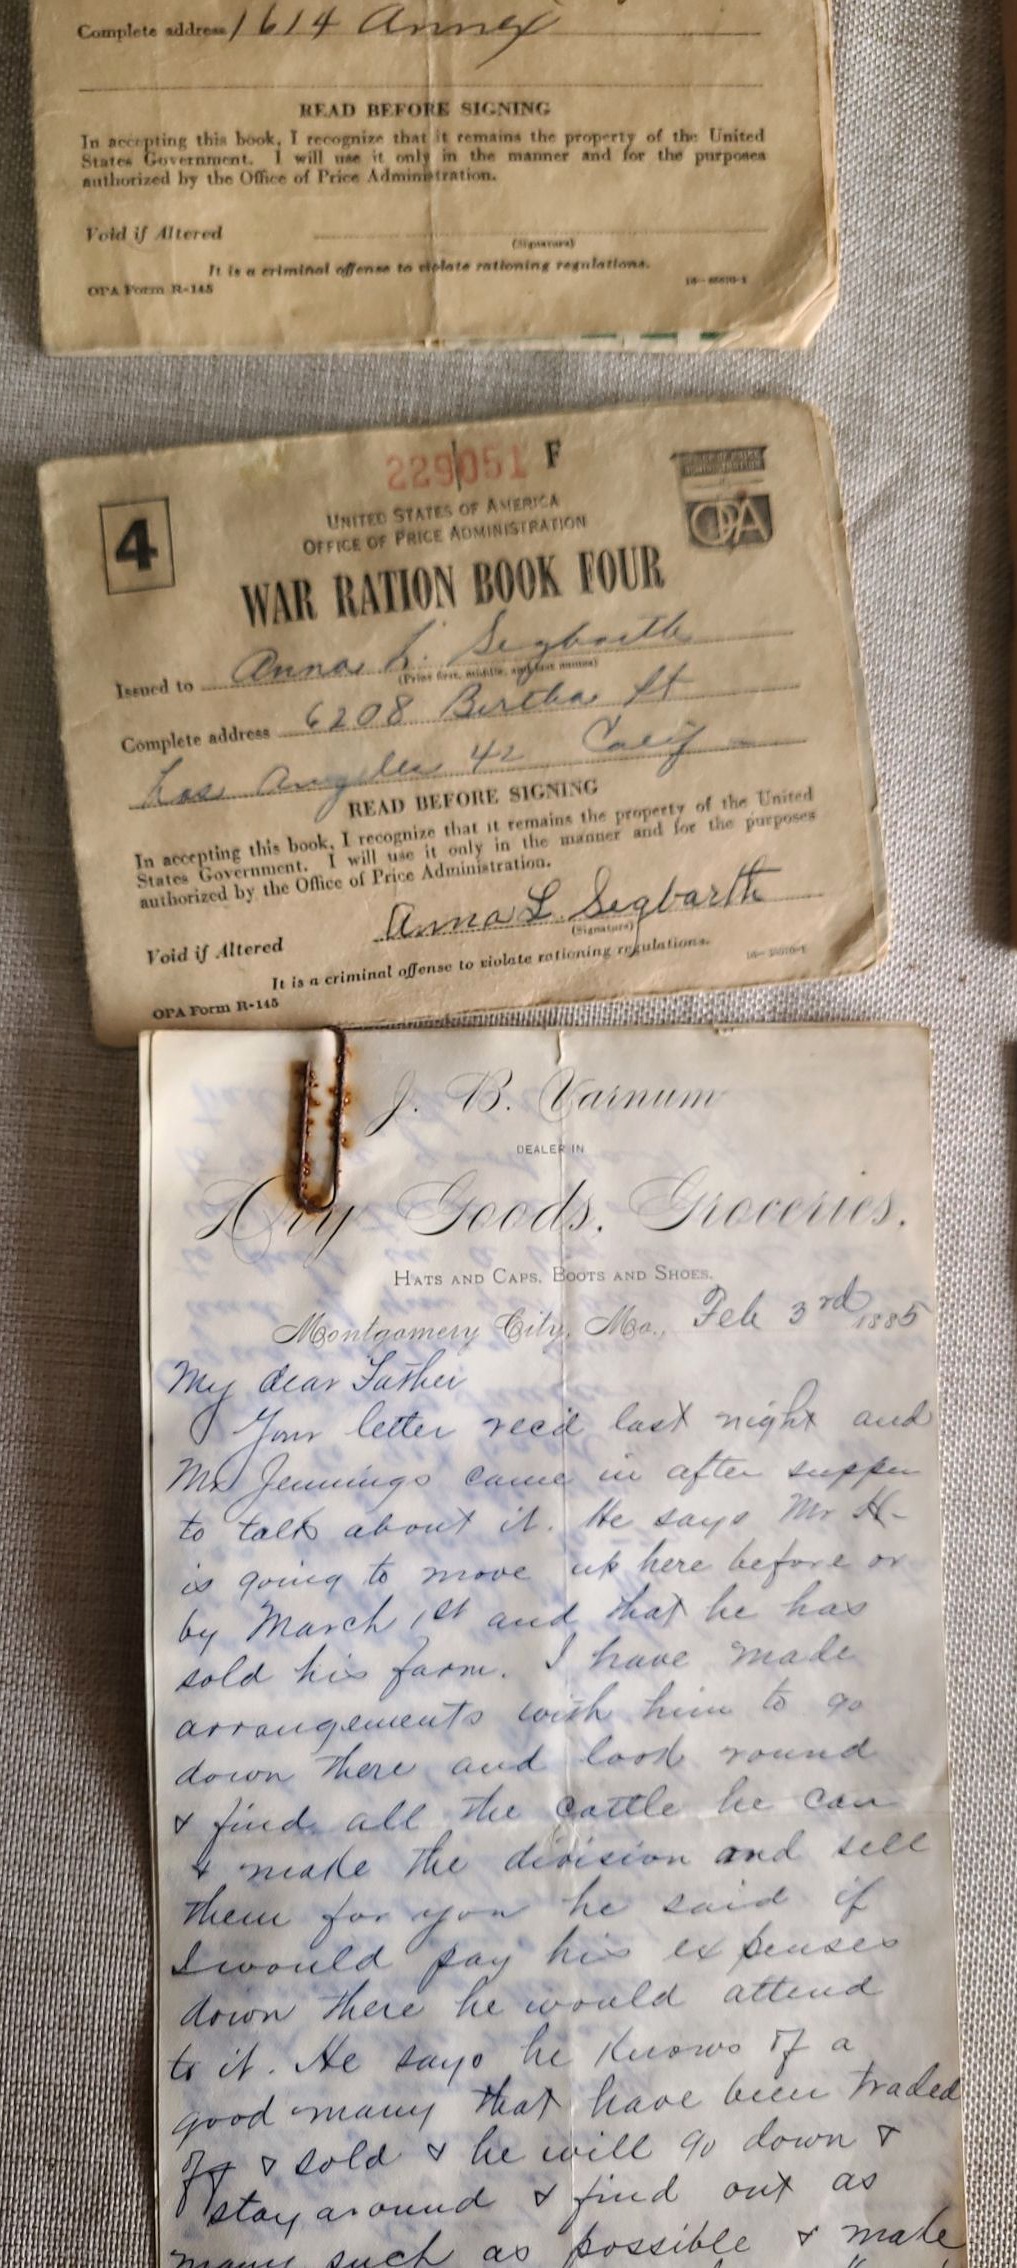 Complete address 1614 Annex
READ BEFORE SIGNING
In accepting this book, I recognize that it remains the property of the United
States Government. I will use it only in the manner and for the purposes
authorized by the Office of Price Administration.
Void if Altered
(Signature)
It is a criminal offense to violate rationing regulations.
OPA Form R-145
229051 F
4
UNITED STATES OF AMERICA
OFFICE OF PRICE ADMINISTRATION
OPA
WAR RATION BOOK FOUR
Issued to Anna L. Segbarth
(Print first, middle, and last names)
Complete address 6208 Bertha St
Los Angeles 42 Calif
READ BEFORE SIGNING
In accepting this book, I recognize that it remains the property of the United
States Government. I will use it only in the manner and for the purposes
authorized by the Office of Price Administration.
Void if Altered
Anna L. Segbarth
(Signature)
It is a criminal offense to violate rationing regulations.
OPA Form R-145
J. B. Varnum
DEALER IN
Dry Goods, Groceries,
HATS AND CAPS, BOOTS AND SHOES.
Montgomery City, Mo., Feb 3rd 1885
My dear Father
Your letter rec'd last night and
Mr Jennings came in after supper
to talk about it. He says Mr H-
is going to move up here before or
by March 1st and that he has
sold his farm. I have made
arrangements with him to go
down there and look round
& find all the cattle he can
& make the division and sell
them for you he said if
I would pay his expenses
down there he would attend
to it. He says he knows of a
good many that have been traded
off & sold & he will go down &
stay around & find out as
many such as possible & make